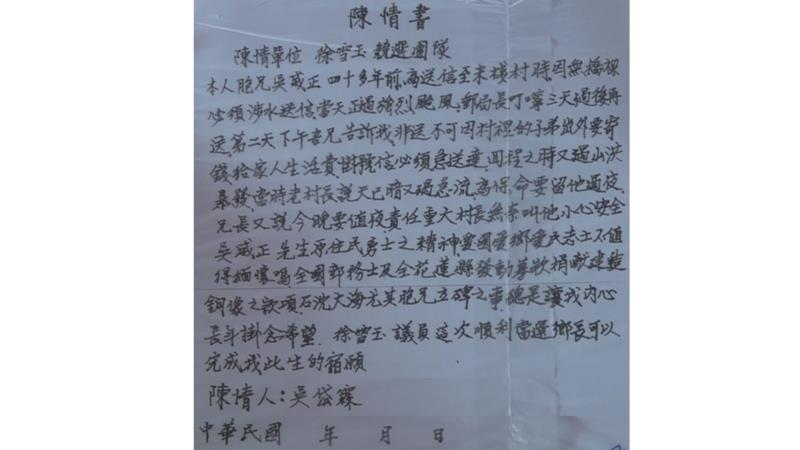 陳情書
陳情單位 徐雪玉競選團隊
本人胞兄吳威正四十多年前,為送信至米棧村時因無橋樑
必須涉水送信當天正遇強烈颱風,郵局長叮嚀三天過後再
送,第二天下午吾兄告訴我非送不可因村裡的子弟出外要寄
錢給家人生活費,掛號信必須急送達,回程之時又遇山洪
暴發,當時老村長說天已暗又遇急流,為保命要留他過夜,
兄長又說今晚要值夜,責任重大村長無奈叫他小心安全
吳威正先生原住民勇士之精神愛國愛鄉愛民志士不值
得緬懷嗎全國郵務士及全花蓮縣發動募款捐獻建造
銅像之款項石沈大海尤其胞兄立碑之事總是讓我內心
長年掛念希望 徐雪玉議員這次順利當選鄉長可以
完成我此生的宿願
陳情人:吳岱霖
中華民國 年 月 日